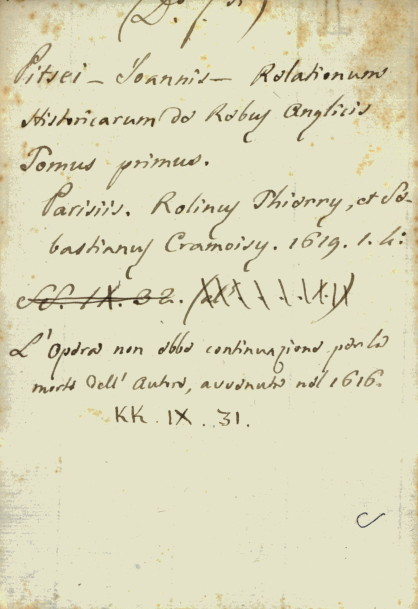 Pitsei - Joannis - Relationum
Historicarum de Rebus Anglicis
Tomus primus.
Parisiis. Rolinus Thierry, et Se-
bastianus Cramoisy. 1619. 1. 4:
IX. 32.
L'Opera non ebbe continuazione per la
morte dell' Autore, avvenuta nel 1616.
KK. IX. 31.
C